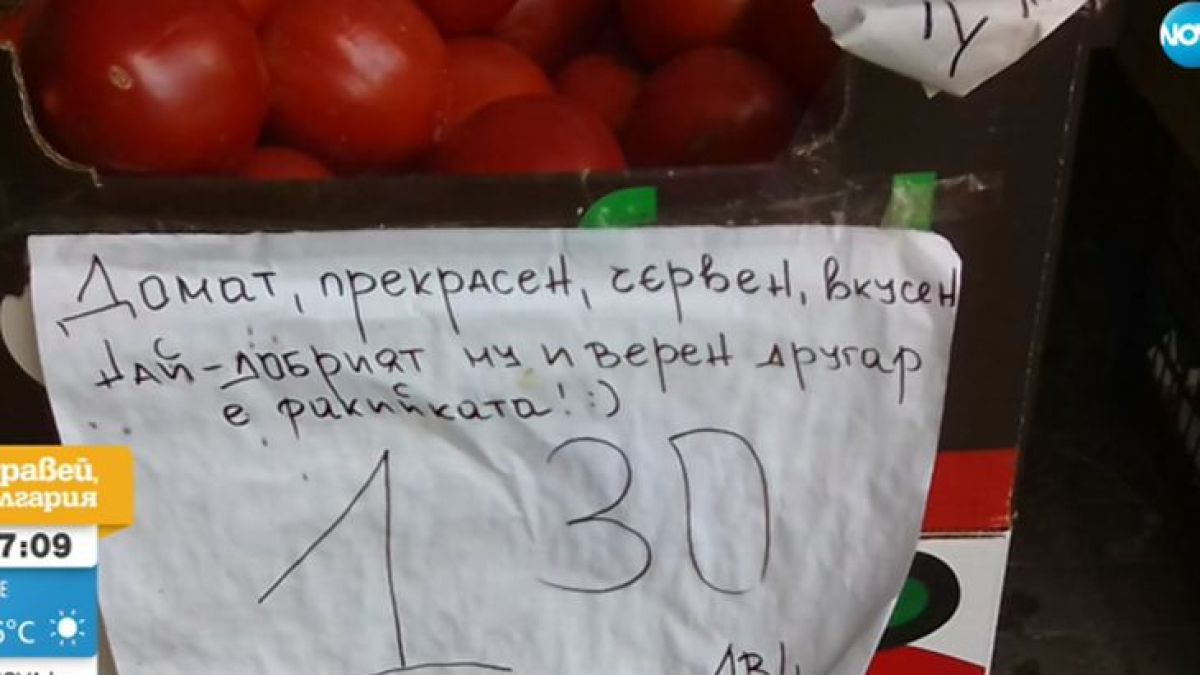 ТУ
NO
Домат, прекрасен, червен, вкусен
Най-добрият му и верен другар
е ракийката! :)
1 30
равей,
лгария
7:09
Е
5°C